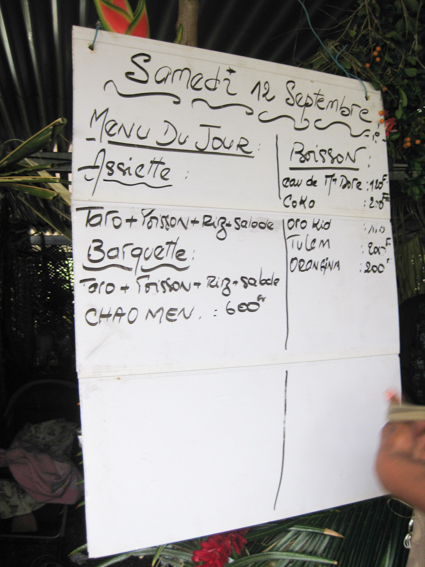 Samedi 12 Septembre
MENU DU JOUR:
Assiette:
Taro + Poisson + Riz + Salade
Barquette:
Taro + Poisson + Riz + Salade
CHAO MEN.: 600Fr
BOISSON:
eau de Mt Dore: 120F
Coko : 250Fr
ORO Kid
TULEM : 200F
ORONGINA : 200F